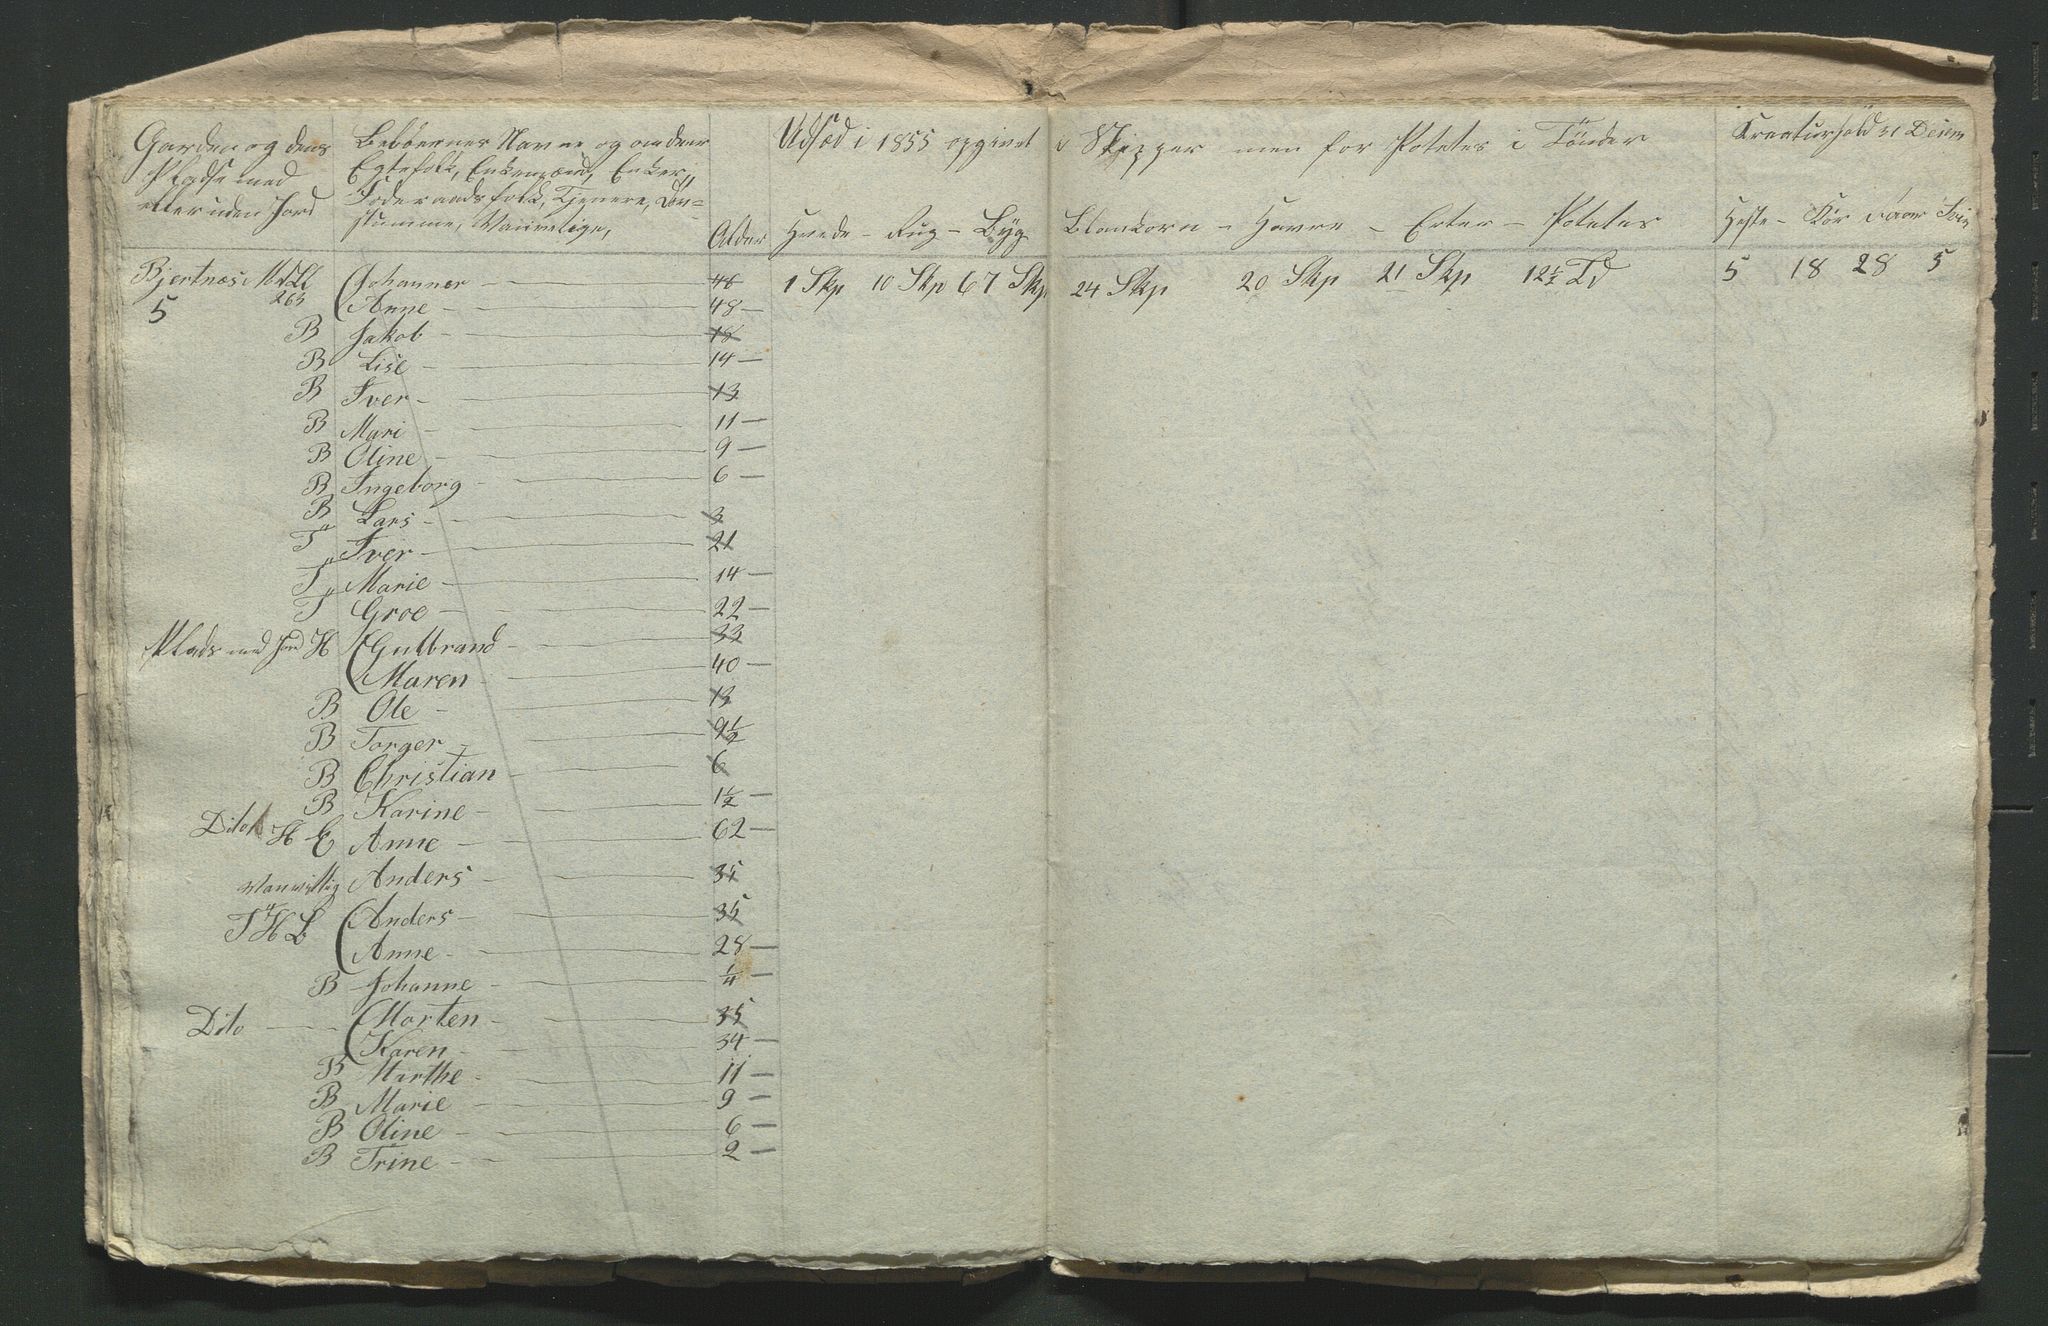 Gardens og dens Pladse med eller uden Jord
Beboernes Navne og om de er Egtefolk, Enkemænd, Enker, Foderaadsfolk, Tjenere, Døvstumme, Vanvitige,
Alder
Udsæd i 1855 opgivet i Skjepper men for Potetes i Tönder
Hvede - Rug - Byg Blankorn - Havre - Erter - Potetes
Kreaturhold 31 Decem
Heste - Kör Faar Svin
Bjertnæs Johannes 46 1 Skp 10 Skp 67 Skp 24 Skp 20 Skp 21 Skp 12½ Td 5 18 28 5
5 263 Anne 48
B Jakob 18
B Lise 14
B Iver 13
B Mari 11
B Oline 9
B Ingeborg 6
B Lars 3
T Iver 21
T Marie 14
T Groe 22
Plads med Jord H Gulbrand 33
Maren 40
B Ole 13
B Torger 9½
B Christian 6
B Karine 1½
Dito H E Anne 62
Vanvittig Anders 34
T H L Anders 35
Anne 28
B Johanne ¼
Dito Morten 35
Karen 34
B Marthe 11
B Marie 9
B Oline 6
B Trine 2